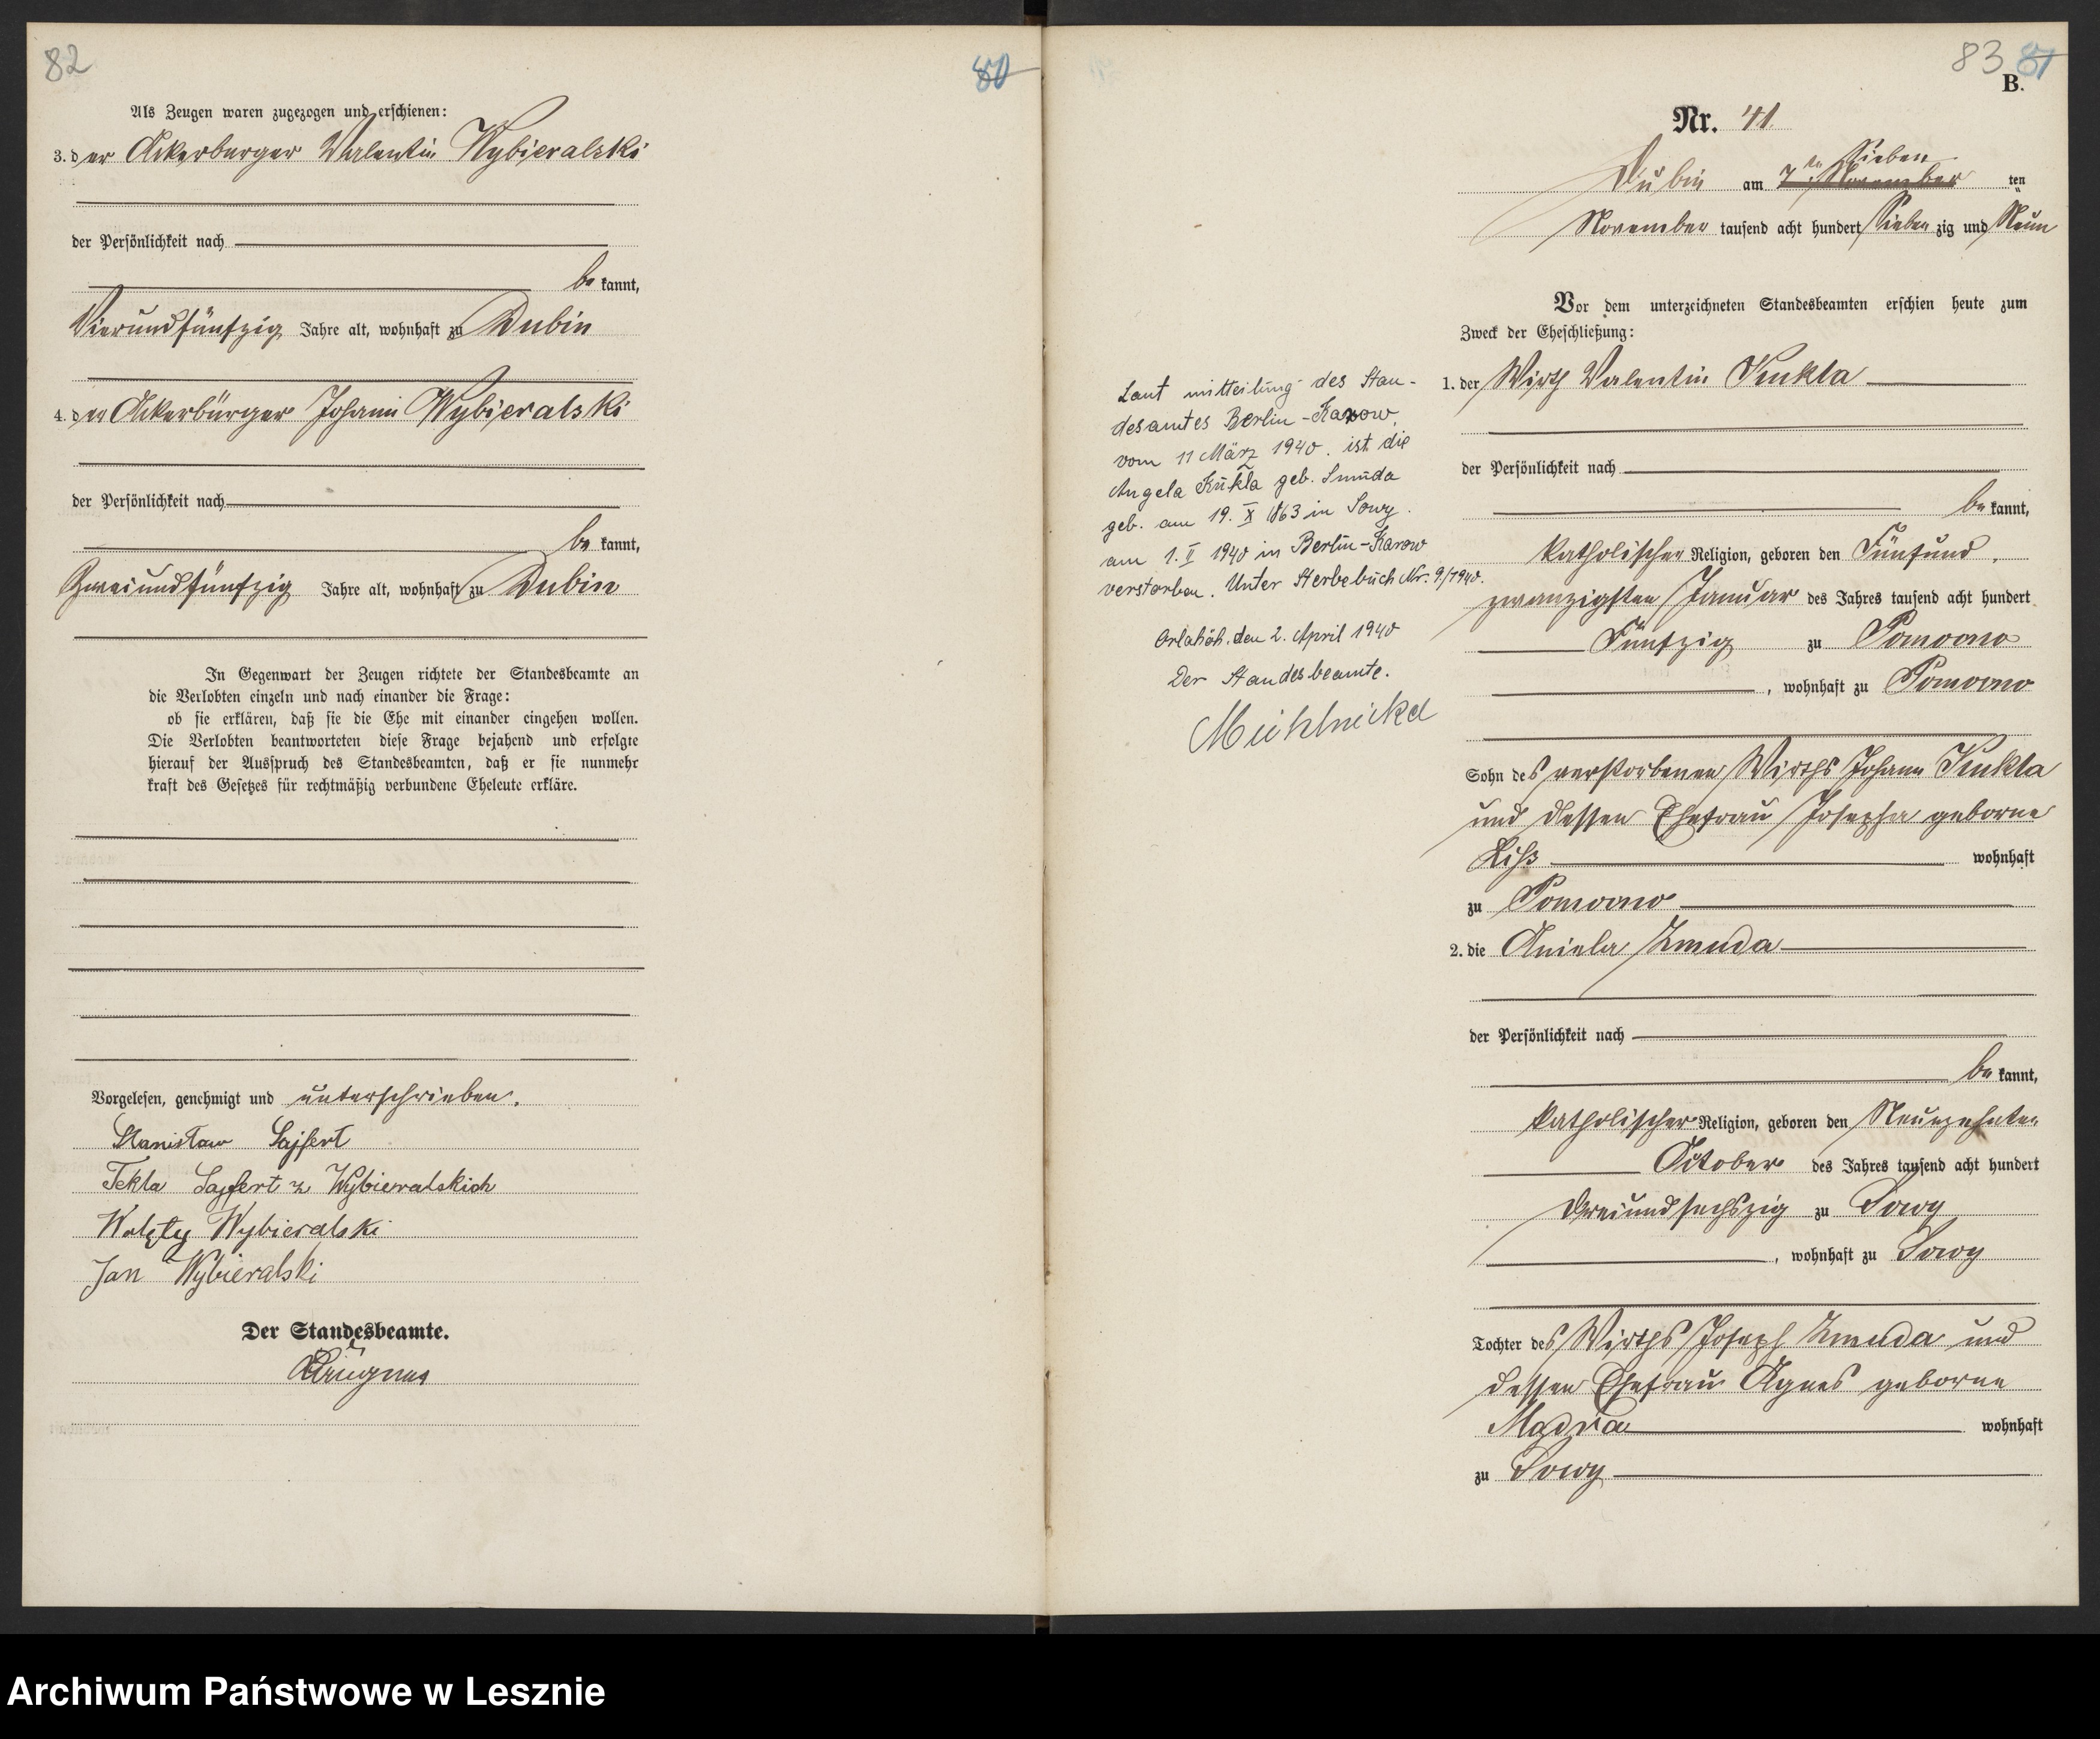 82
80
Als Zeugen waren zugezogen und erschienen:
3. der Ackerbürger Valentin Wybieralski
der Persönlichkeit nach
be kannt,
Vierundfünfzig Jahre alt, wohnhaft zu Dubin
4. der Ackerbürger Johann Wybieralski
der Persönlichkeit nach
be kannt,
Zweiundfünfzig Jahre alt, wohnhaft zu Dubin
In Gegenwart der Zeugen richtete der Standesbeamte an
die Verlobten einzeln und nach einander die Frage:
ob sie erklären, daß sie die Ehe mit einander eingehen wollen.
Die Verlobten beantworteten diese Frage bejahend und erfolgte
hierauf der Ausspruch des Standesbeamten, daß er sie nunmehr
kraft des Gesetzes für rechtmäßig verbundene Eheleute erkläre.
Vorgelesen, genehmigt und unterschrieben.
Stanisław Sajfert
Tekla Sajfert z Wybieralskich
Walęty Wybieralski
Jan Wybieralski
Der Standesbeamte.
83 81
B.
Nr. 41.
Sieben
Dubin am 7ten November ten
November tausend acht hundert Sieben zig und Neun
Vor dem unterzeichneten Standesbeamten erschien heute zum
Zweck der Eheschließung:
1. der Wirth Valentin Kukla
der Persönlichkeit nach
be kannt,
katholischer Religion, geboren den Fünfund
zwanzigsten Januar des Jahres tausend acht hundert
Fünfzig zu Pomocno
, wohnhaft zu Pomocno
Sohn des verstorbenen Wirths Johann Kukla
und dessen Ehefrau Josepha geborne
Liß wohnhaft
zu Pomocno
2. die Aniela Zmuda
der Persönlichkeit nach
be kannt,
katholischer Religion, geboren den Neunzehnten
October des Jahres tausend acht hundert
dreiundsechszig zu Sowy
, wohnhaft zu Sowy
Tochter des Wirths Joseph Zmuda und
dessen Ehefrau Agnes geborne
Madra wohnhaft
zu Sowy
Laut mitteilung des Stan-
desamtes Berlin-Karow,
vom 11 März 1940. ist die
Angela Kukla geb. Smuda
geb. am 19. X 1863 in Sowy.
am 1. II 1940 in Berlin-Karow
verstorben. Unter Sterbebuch Nr. 9/1940.
Orlahöh. den 2. April 1940
Der Standesbeamte.
Archiwum Państwowe w Lesznie